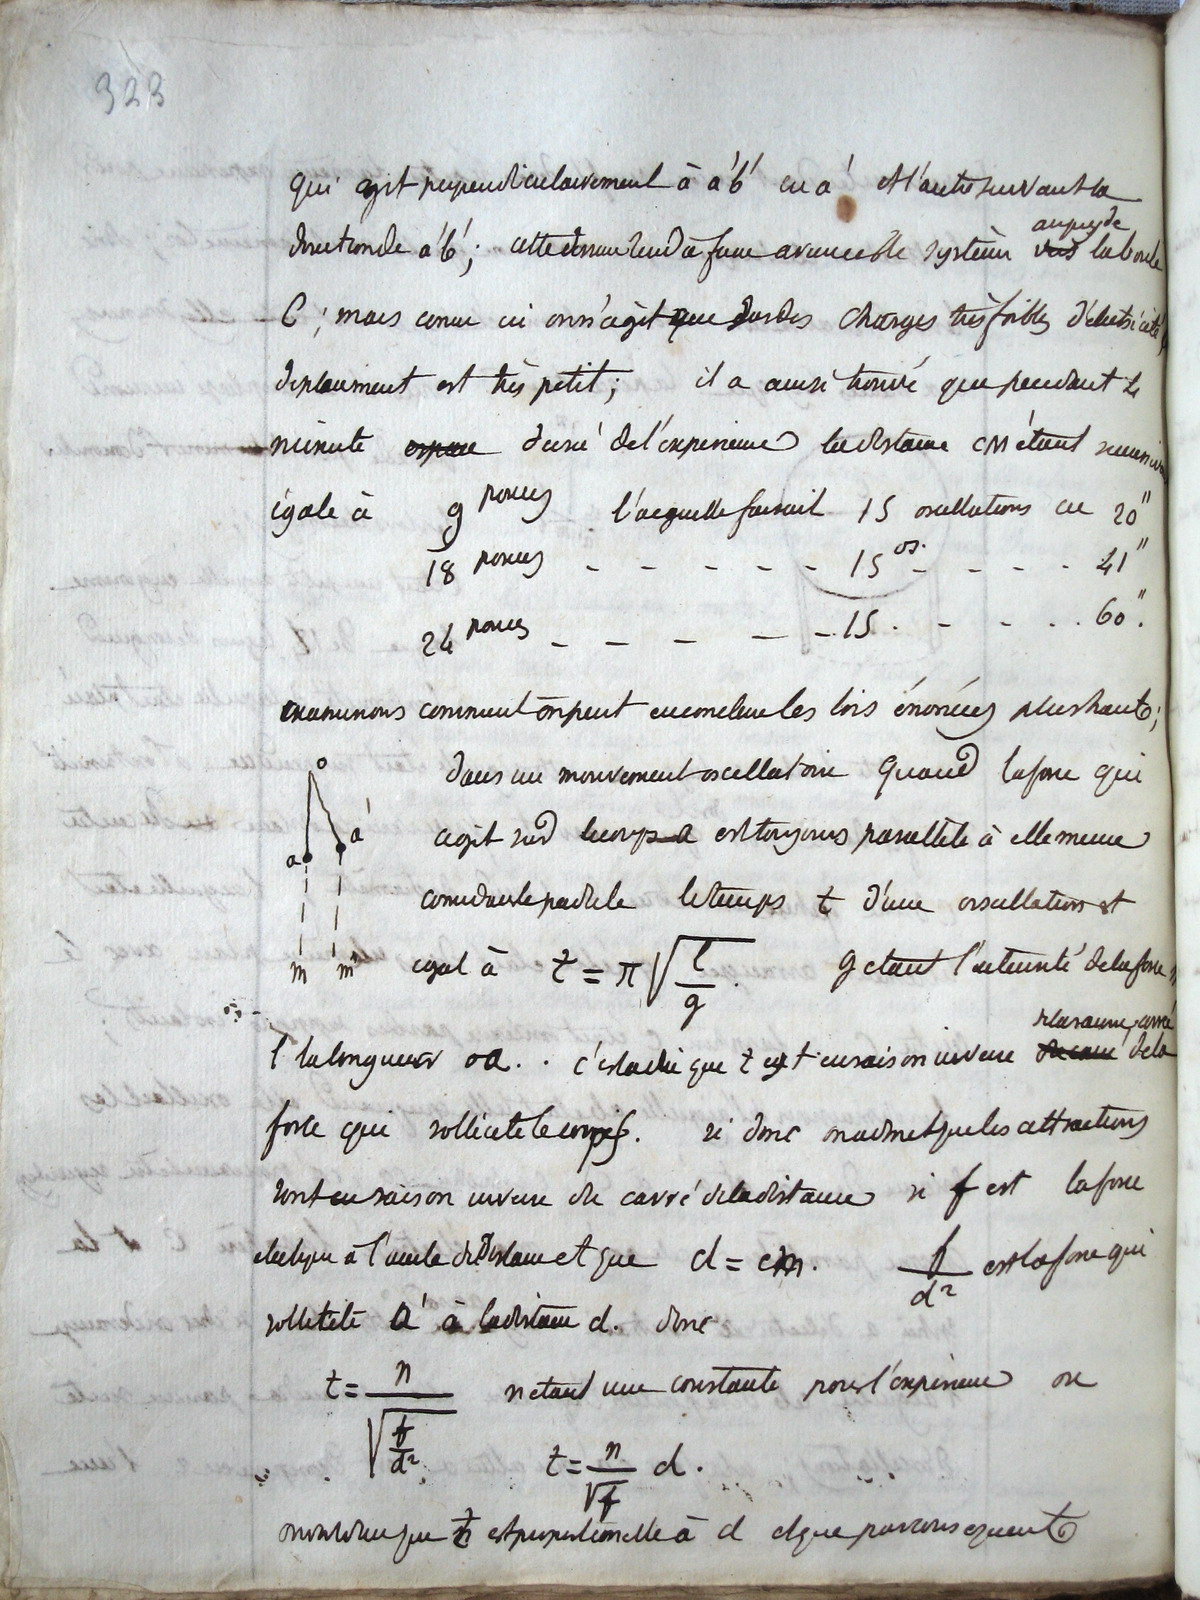 323
qui agit perpendiculairement à a'b' en a' et l'autre suivant la
direction de a'b'; cette derniere tend à faire avancer le système vers auprès de la boule
C; mais comme ici on n'agit que sur des charges très foibles d'électricité
déplacement est très petit; il a ainsi trouvé que pendant 4
minute espace durée de l'experience la distance CM étant successivement
égale à 9 pouces l'aeguille faisait 15 oscillations en 20"
18 pouces - - - - - 15 os. - - - - 41"
24 pouces - - - - - 15 . - - - . . 60".
examinons comment on peut en conclure les lois énoncées plus haut;
o
a a'
m m'
dans un mouvement oscillatoire quand la force qui
agit sur le corps a est toujours parallele à elle meme
considerable le temps t d'une oscillation est
egal à t = π √(l/g) . g etant l'intensité de la force
l la longueur oa . . c'est a dire que t est en raison inverse du carré de la racine carré de la
force qui sollicite le corps. si donc on admet que les attractions
sont en raison inverse du carré de la distance si f est la force
electrique à l'unité de distance et que d = cm. f/d² est la force qui
sollicite a' à la distance d. donc
t = n/√(f/d²) n etant une constante pour l'experience ou
t = n/√f d .
on voit donc que t est proportionnelle à d et que par consequent